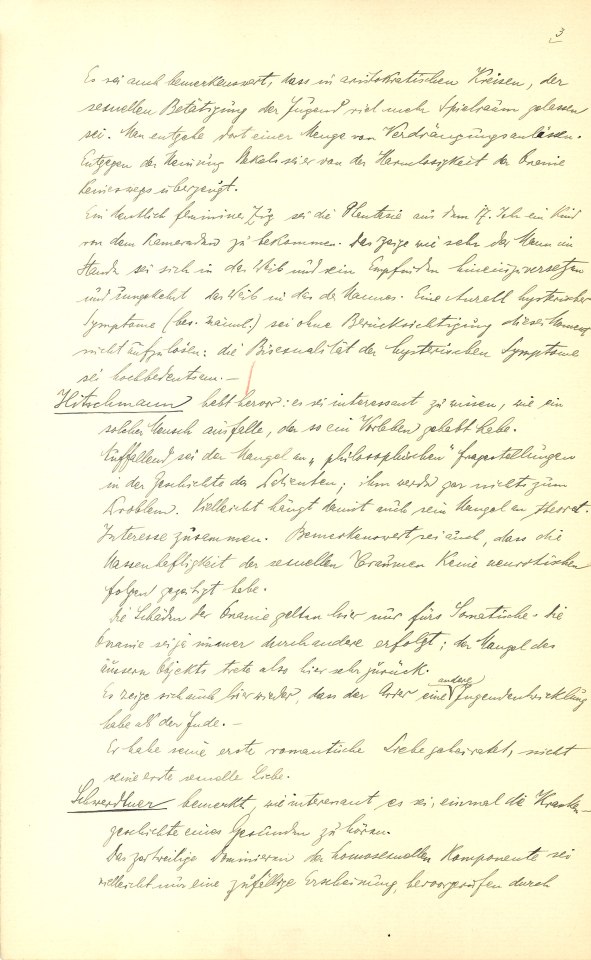 3
Es sei auch bemerkenswert, dass in aristokratischen Kreisen, der
sexuellen Betätigung der Jugend viel mehr Spielraum gelassen
sei. Man entgehe dort einer Menge von Verdrängungsanlässen.
Entgegen der Meinung Stekels sei er von der Harmlosigkeit der Onanie
keineswegs überzeugt.
Ein deutlich femininer Zug sei die Phantasie aus dem 17. Jahr ein Kind
von dem Kameraden zu bekommen. Das zeige wie sehr der Mann im
Stande sei sich in das Weib und sein Empfinden hineinzuversetzen
und umgekehrt das Weib in das des Mannes. Eine Anzahl hysterischer
Symptome (bes. männl.) sei ohne Berücksichtigung dieses Moments
nicht aufzulösen: die Bisexualität der hysterischen Symptome
sei hochbedeutsam. —
Hitschmann hebt hervor: es sei interessant zu wissen, wie ein
solcher Mensch ausfalle, der so ein Vorleben gehabt habe.
Auffallend sei der Mangel an „philosophischen" Fragestellungen
in der Geschichte des Patienten; ihm werde gar nichts zum
Problem. Vielleicht hängt damit auch sein Mangel an theoret.
Interesse zusammen. Bemerkenswert sei auch, dass die
Massenhaftigkeit der sexuellen Traumen keine neurotischen
Folgen gezeitigt habe.
Die Schäden der Onanie gelten hier nur fürs Somatische. die
Onanie sei ja immer durch andere erfolgt; der Mangel des
äussern Objekts trete also hier sehr zurück.
Es zeige sich auch hier wieder, dass der Arier eine andere Jugendentwicklung
habe als der Jude. —
Er habe seine erste romantische Liebe geheiratet, nicht
seine erste sexuelle Liebe.
Schwerdtner bemerkt, wie interessant es sei, einmal die Kranken-
geschichte eines Gesunden zu hören.
Das zeitweilige Dominieren der homosexuellen Komponente sei
vielleicht nur eine zufällige Erscheinung, hervorgerufen durch